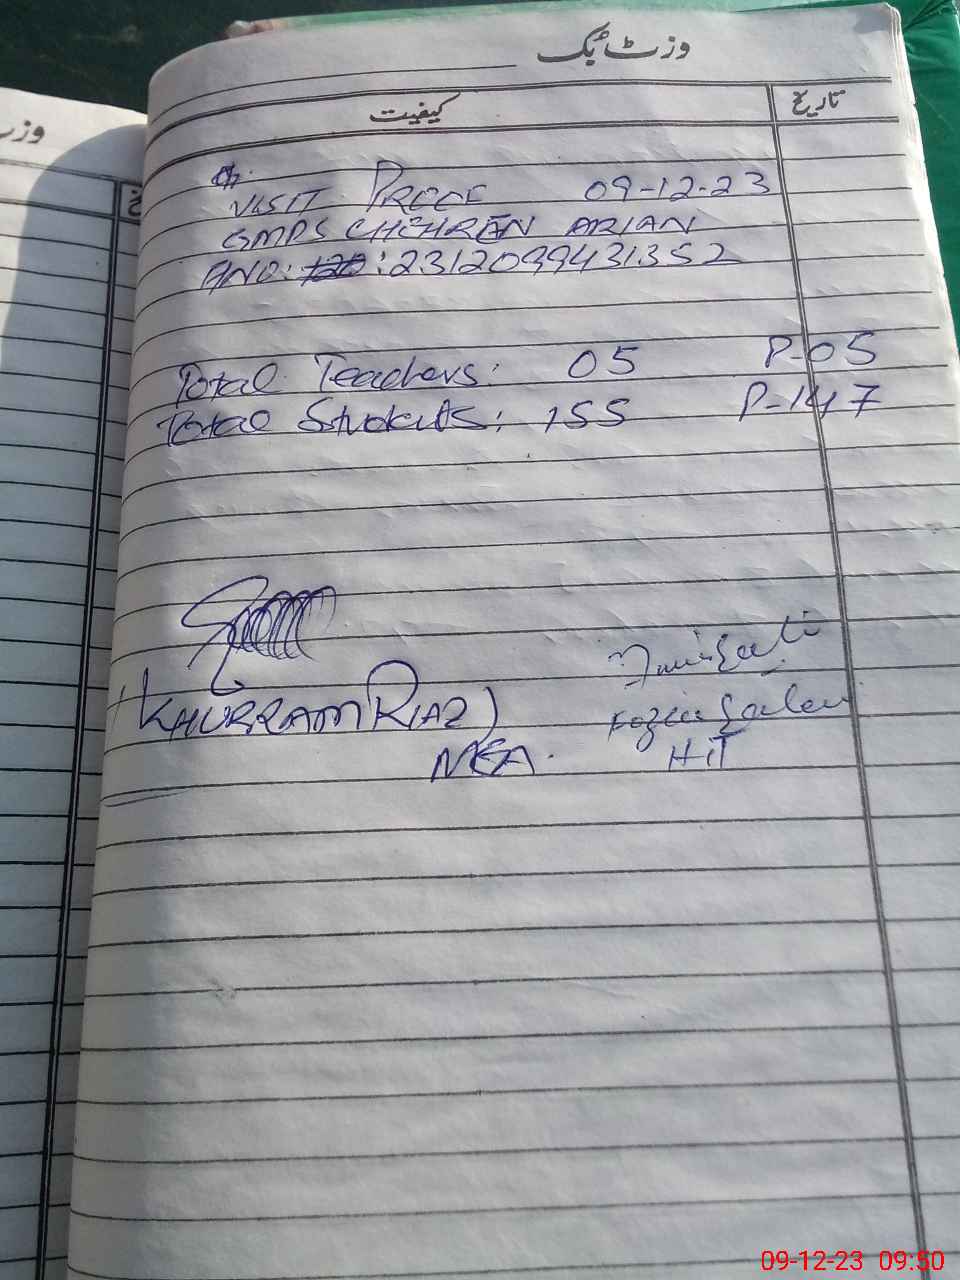 وزٹ بک
کیفیت تاریخ
VISIT PROOF 09-12-23
GMPS CHEHREN ARIAN
ANO: : 2312099431352
Total Teachers: 05 P-05
Total Students: 155 P-147
(KHURRAM RIAZ)
MEA.
HT
09-12-23 09:50